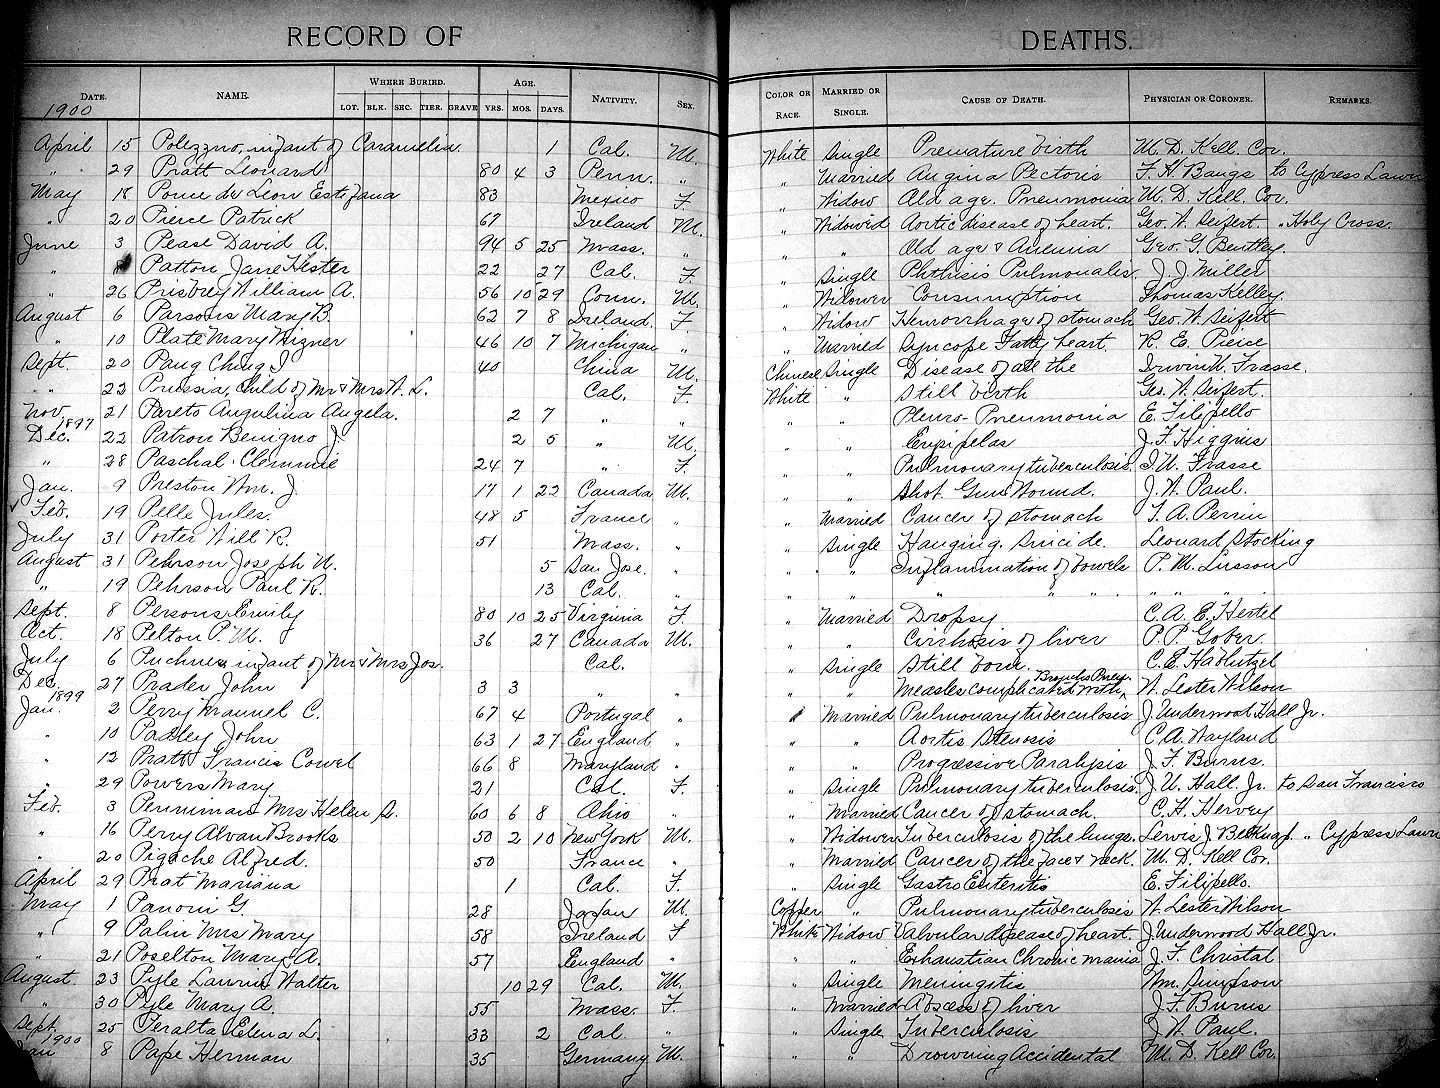 RECORD OF DEATHS.
DATE. NAME. WHERE BURIED. LOT. BLK. SEC. TIER. GRAVE AGE. YRS. MOS. DAYS. NATIVITY. SEX. COLOR OR RACE. MARRIED OR SINGLE. CAUSE OF DEATH. PHYSICIAN OR CORONER. REMARKS.
1900
April 15 Polezzno, infant of Caramelia. 1 Cal. M. White Single Premature birth M. D. Kell. Cor.
" 29 Pratt Leonard 80 4 3 Penn. " " Married Angina Pectoris F. H. Bangs to Cypress Lawn
May 18 Ponce de Leon Estefana 83 Mexico F. " Widow Old age. Pneumonia M. D. Kell Cor.
" 20 Pierce Patrick 67 Ireland M. " Widowed Aortic disease of heart. Geo. W. Seifert. " Holy Cross.
June 3 Pease David A. 94 5 25 Mass. " " " Old age & Anemia Geo. G. Bentley.
" 8 Patton Jane Hester 22 27 Cal. F. " Single Phthisis Pulmonalis. J. J. Miller
" 26 Prisbrey William A. 56 10 29 Conn. M. " Widower Consumption Thomas Kelley.
August 6 Parsons Mary B. 62 7 8 Ireland. F. " Widow Hemorrhage of stomach Geo. W. Seifert
" 10 Plate Mary Wigner 46 10 7 Michigan " " Married Syncope Fatty heart. R. E. Pierce
Sept. 20 Pang Chung I 40 China M. Chinese Single Disease of all the Irwin N. Frasse.
" 22 Prussia, Child of Mr & Mrs W. L. Cal. F. White " Still birth Geo. W. Seifert.
Nov. 21 Pareto Angulina Angela. 2 7 " " " " Pleuro-Pneumonia E. Filipello
1897
Dec. 22 Patron Benigno J. 2 5 " M. " " Erysipelas J. F. Higgins
" 28 Paschal Clemmie 24 7 " F. " " Pulmonary tuberculosis. I. N. Frasse
Jan. 9 Preston Wm. J. 17 1 22 Canada M. " " Shot Gun Wound. J. W. Paul.
Feb. 19 Pelle Jules. 48 5 France " " Married Cancer of stomach T. A. Perrin
July 31 Porter Will R. 51 Mass. " " Single Hanging. Suicide. Leonard Stocking
August 31 Pehrson Joseph N. 5 San Jose. " " " Inflammation of bowels P. M. Lusson
" 19 Pehrson Paul R. 13 Cal. " " " " " " " " "
Sept. 8 Persons, Emily 80 10 25 Virginia F. " Married Dropsy C. A. E. Hertel
Oct. 18 Pelton P. M. 36 27 Canada M. " " Cirrhosis of liver P. P. Gober.
July 6 Puchner infant of Mr & Mrs Jos. Cal. " Single Still born. C. E. Hablutzel
Dec. 27 Prader John 3 3 " " " " Measles complicated with Broncho Pney. W. Lester Wilson
1899
Jan. 2 Perry Manuel C. 67 4 Portugal " " Married Pulmonary tuberculosis J. Underwood Hall Jr.
" 10 Padley John 63 1 27 England " " " Aortis Stenosis C. A. Wayland
" 12 Pratt Francis Cowel 66 8 Maryland " " " Progressive Paralysis J. F. Burns.
" 29 Powers Mary 21 Cal. F. " Single Pulmonary tuberculosis. J. U. Hall. Jr. to San Francisco
Feb. 3 Penniman Mrs Helen D. 60 6 8 Ohio " " Married Cancer of stomach. C. H. Hervey
" 16 Perry Alvan Brooks 50 2 10 New York M. " Widower Tuberculosis of the lungs. Lewis J. Belknap " Cypress Lawn
" 20 Pigache Alfred. 50 France " " Married Cancer of the face & neck. M. D. Kell Cor.
April 29 Prat Mariana 1 Cal. F. " Single Gastro Enteritis E. Filipello.
May 1 Panoni G. 28 Japan M. Copper " Pulmonary tuberculosis W. Lester Wilson
" 9 Palm Mrs Mary 58 Ireland F. White Widow Valvular disease of heart. J. Underwood Hall Jr.
" 21 Poselton Mary A. 57 England " " " Exhaustian Chronic mania J. F. Christal
August. 23 Pyle Laurin Walter 10 29 Cal. M. " Single Meningitis Wm. Simpson
" 30 Pyle Mary A. 55 Mass. F. " Married Abscess of liver J. F. Burns
Sept. 25 Peralta Elena L. 33 2 Cal " " Single Tuberculosis J. W. Paul.
1900
Jan 8 Pape Herman 35 Germany M. " " Drowning Accidental M. D. Kell Cor.